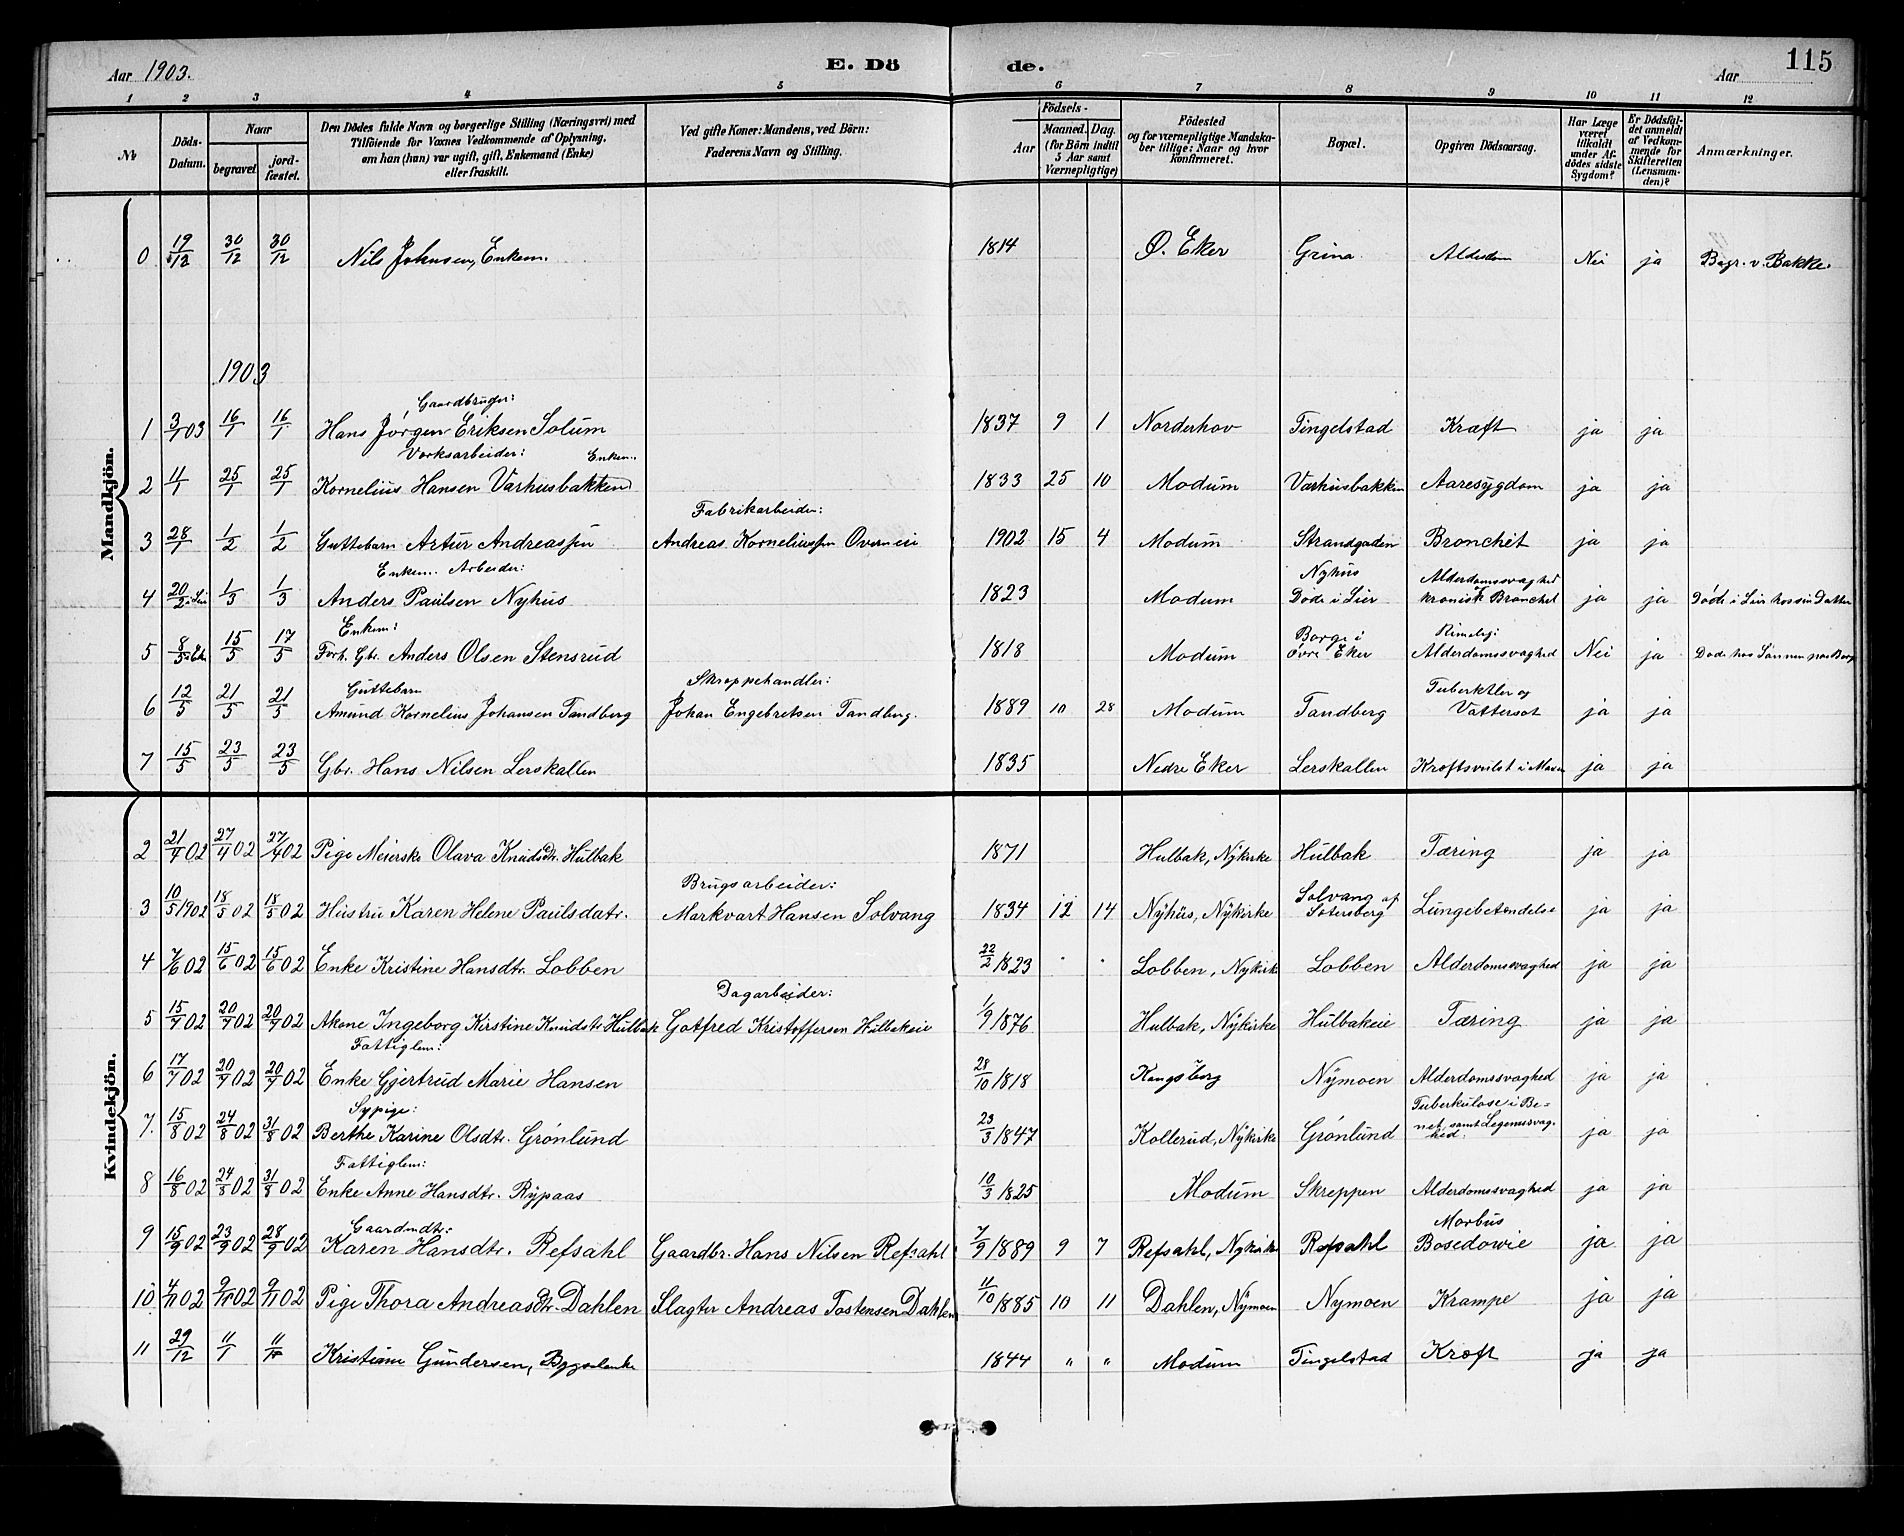 Aar 1903.
E. Dö
de.
Aar
115
1 2 3 4 5 6 7 8 9 10 11 12
Nr
Döds-Datum.
Naar
begravet
jordfæstet.
Den Dödes fulde Navn og borgerlige Stilling (Næringsvei) med
Tilföiende for Voxnes Vedkommende af Oplysning,
om han (hun) var ugift, gift, Enkemand (Enke)
eller fraskilt.
Ved gifte Koner: Mandens, ved Börn:
Faderens Navn og Stilling.
Födsels-
Aar
Maaned. Dag.
(for Börn indtil
5 Aar samt
Værnepligtige)
Födested
og for værnepligtige Mandska-
ber tillige: Naar og hvor
konfirmeret.
Bopæl.
Opgiven Dödsaarsag.
Har Læge
været
tilkaldt
under Af-
dödes sidste
Sygdom?
Er Dödsfal-
det anmeldt
af Vedkom-
mende for
Skifteretten
(Lensman-
den)?
Anmærkninger.
Mandkjön.
0 19/12 30/12 30/12 Nils Johnsen, Enkem. 1814 Ø. Eker Grina Alderdom Nei ja Begr. v. Bakke.
1903
Gaardbruger:
1 3/1 03 16/1 16/1 Hans Jørgen Eriksen Solum 1837 9 1 Norderhov Tingelstad Kræft ja ja
Værksarbeider: Enkem.
2 11/1 25/1 25/1 Kornelius Hansen Varhusbakken 1833 25 10 Modum Varhusbakken Aaresygdom ja ja
Fabrikarbeider:
3 28/1 1/2 1/2 Guttebarn Artur Andreassen Andreas Korneliussen Overnei 1902 15 4 Modum Strandgaden Bronchit ja ja
Enkem. Arbeider: Nyhus Alderdomssvaghed
4 20/2 i Lier 1/3 1/3 Anders Paulsen Nyhus 1823 Modum Døde i Lier kronisk Bronchit ja ja Døde i Lier hos sin Datter
Enkem: Borge i Rimelig:
5 8/5 15/5 17/5 Forh. Gbr. Anders Olsen Stensrud 1818 Modum Øvre Eker Alderdomssvaghed Nei ja Døde hos Sønnen paa Borge
Guttebarn Skreppehandler: Tuberkler og
6 12/5 21/5 21/5 Amund Kornelius Johansen Tandberg Johan Engebretsen Tandberg. 1889 10 28 Modum Tandberg Vattersot ja ja
7 15/5 23/5 23/5 Gbr. Hans Nilsen Lerskallen 1835 Nedre Eker Lerskallen Kræftsvulst i Maven ja ja
Kvindekjön.
2 21/4 02 27/4 02 27/4 02 Pige Meierske Olava Knudsdtr. Hulbak 1871 Hulbak, Nykirke Hulbak Tæring ja ja
Brugsarbeider: Solvang af
3 10/5 1902 18/5 02 18/5 02 Hustru Karen Helene Paulsdatr. Markvart Hansen Solvang 1834 12 14 Nyhus, Nykirke Sotersberg Lungebetændelse ja ja
4 7/6 02 15/6 02 15/6 02 Enke Kristine Hansdtr. Lobben 22/2 1823 Lobben, Nykirke Lobben Alderdomssvaghed ja ja
Dagarbeider:
5 15/7 02 20/7 02 20/7 02 Akone Ingeborg Kirstine Knudsdtr Hulbak Gotfred Kristoffersen Hulbakeie 1/9 1876 Hulbak, Nykirke Hulbakeie Tæring ja ja
Fattiglem:
6 17/7 02 20/7 02 20/7 02 Enke Gjertrud Marie Hansen 28/10 1818 Kongsberg Nymoen Alderdomssvaghed ja ja
Sypige: Tuberkulose i Be-
7. 15/8 02 24/8 02 31/8 02 Berthe Karine Olsdtr. Grønlund 23/3 1847 Kollerud, Nykirke Grønlund net samt Legemssvag-
hed. ja ja
Fattiglem:
8 16/8 02 24/8 02 31/8 02 Enke Anne Hansdtr. Rypaas 10/3 1825 Modum Skreppen Alderdomssvaghed ja ja
Gaardmdtr: Morbus
9 15/9 02 23/9 02 28/9 02 Karen Hansdtr. Refsahl Gaardbr. Hans Nilsen Refsahl 7/9 1889 9 7 Refsahl, Nykirke Refsahl Bosedowie ja ja
10. 4/11 02 9/11 02 9/11 02 Pige Thora Andreasdtr Dahlen Slagter Andreas Tostensen Dahlen 11/10 1885 10 11 Dahlen, Nymoen Nymoen Krampe ja ja
11 29/12 11/1 11/1 Kristine Gundersen, Bygselenke 1844 " " Modum Tingelstad Kræft ja ja